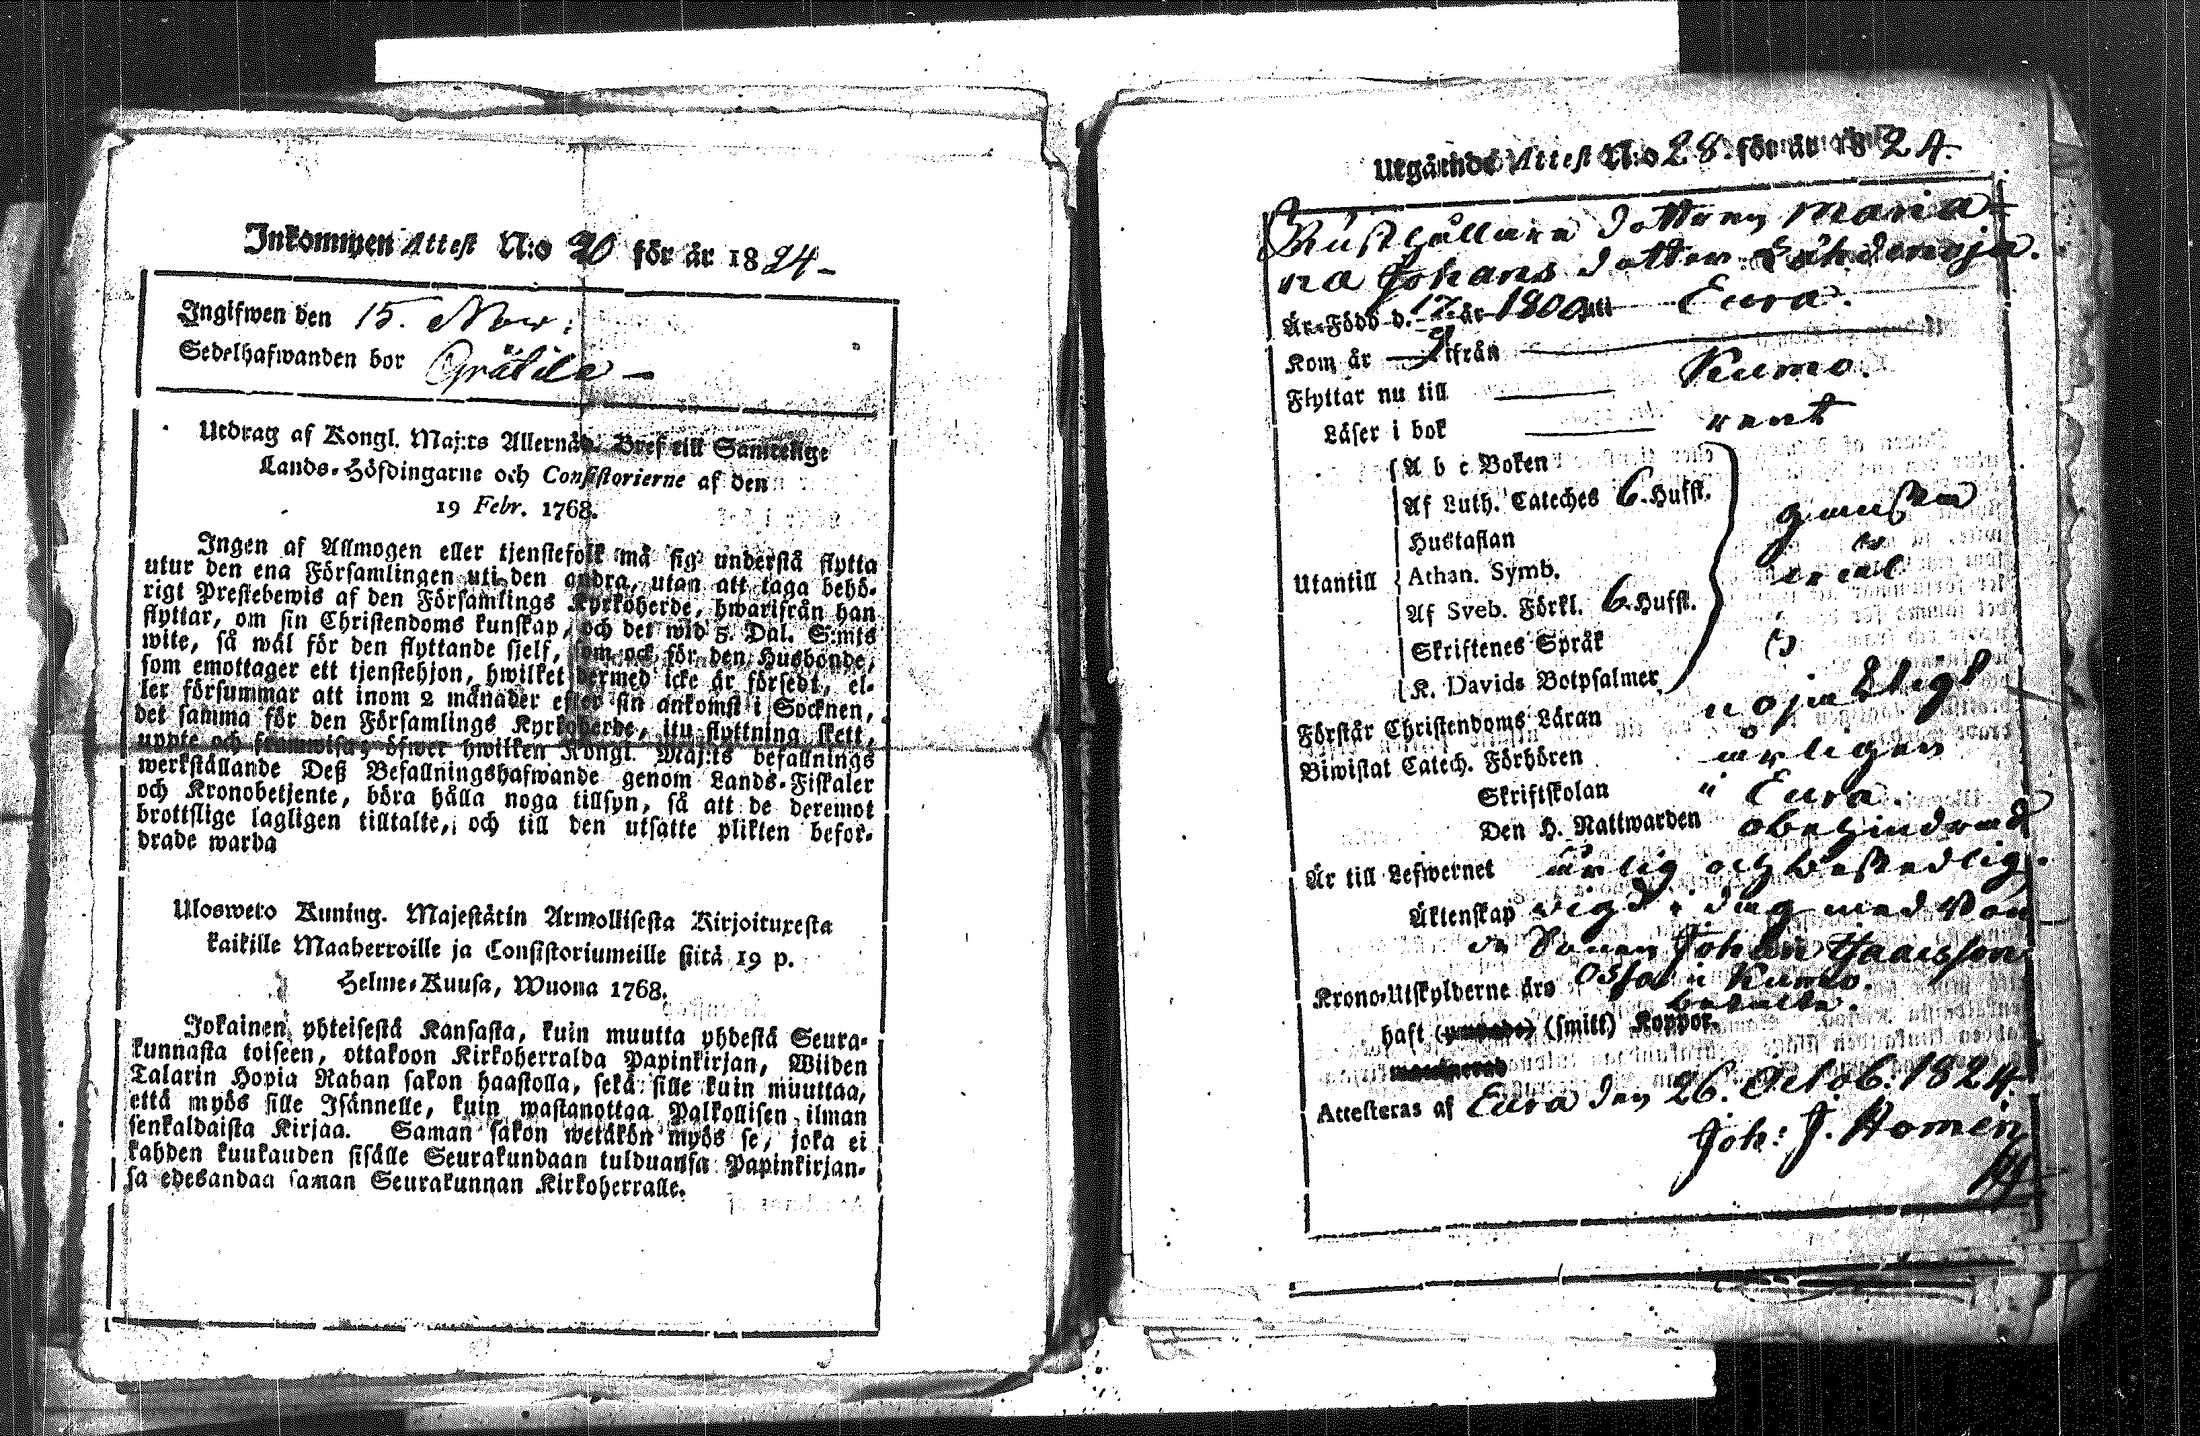 Inkommen Attest N:o 20 för år 1824 -
Ingifwen den 15. Nov:
Sedelhafwanden bor
Utdrag af Kongl. Maj:ts Allernåd. Bref till Samtelige
Lands-Höfdingarne och Consistorierne af den
19 Febr. 1768.
Ingen af Allmogen eller tjenstefolk må sig understå flytta
utur den ena Församlingen uti den andra, utan att taga behö-
rigt Prestebewis af den Församlings Kyrkoherde, hwarifrån han
flyttar, om sin Christendoms kunskap, och det wid 5. Dal. S:mts
wite, så wäl för den flyttande sjelf, som ock för den Husbonde,
som emottager ett tjenstehjon, hwilket dermed icke är försedt, el-
ler försummar att inom 2 månader efter sin ankomst i Socknen,
det samma för den Församlings Kyrkoherde, itu flyttning skett,
uppte och framwisa; öfwer hwilken Kongl. Maj:ts befallnings
werkställande Deß Befallningshafwande genom Lands-Fiskaler
och Kronobetjente, böra hålla noga tillsyn, så att de deremot
brottslige lagligen tilltalte, och till den utsatte plikten befor-
drade warda
Uloswero Kuning. Majestätin Armollisesta Kirjoituxesta
kaikille Maaherroille ja Consistoriumeille siitä 19 p.
Helme-Kuusa, Wuona 1768.
Jokainen yhteisestä Kansasta, kuin muutta yhdestä Seura-
kunnasta toiseen, ottakoon Kirkoherralda Papinkirjan, Wiiden
Talarin Hopia Rahan sakon haastolla, sekä sille kuin muuttaa,
että myös sille Isännelle, kuin wastanottaa Palkollisen ilman
senkaldaista Kirjaa. Saman sakon wetäkön myös se, joka ei
kahden kuukauden sisälle Seurakundaan tulduansa Papinkirjan-
sa edesandaa saman Seurakunnan Kirkoherralle.
Utgående Attest N:o 28. för år 1824.
Rusthållare dottren Maria-
na Johans dotter Lähdenoja.
Är Född d. 17/9 år 1800 uti Eura.
Kom år ifrån
Flyttar nu till Kumo.
Läser i bok rent
A b c Boken
Af Luth. Cateches 6. Hufst.
Hustaflan
Utantill Athan. Symb.
Af Sveb. Förkl. 6. Hufst.
Skriftenes Språk
K. Davids Botpsalmer
Förstår Christendoms Läran nöjaktligt
Biwistat Catech. Förhören årligen
Skriftskolan i Eura.
Den H. Nattwarden obehindrad
Är till Lefwernet ärlig och beskedlig.
Äktenskap vigd i dag med Bon
de Sonen Johan Isaacsson
Krono-Utskylderne äro i Kumo.
betalte.
haft (smitt) Koppor.
Attesteras af Eura den 26. Octob: 1824
Joh: J. Homén